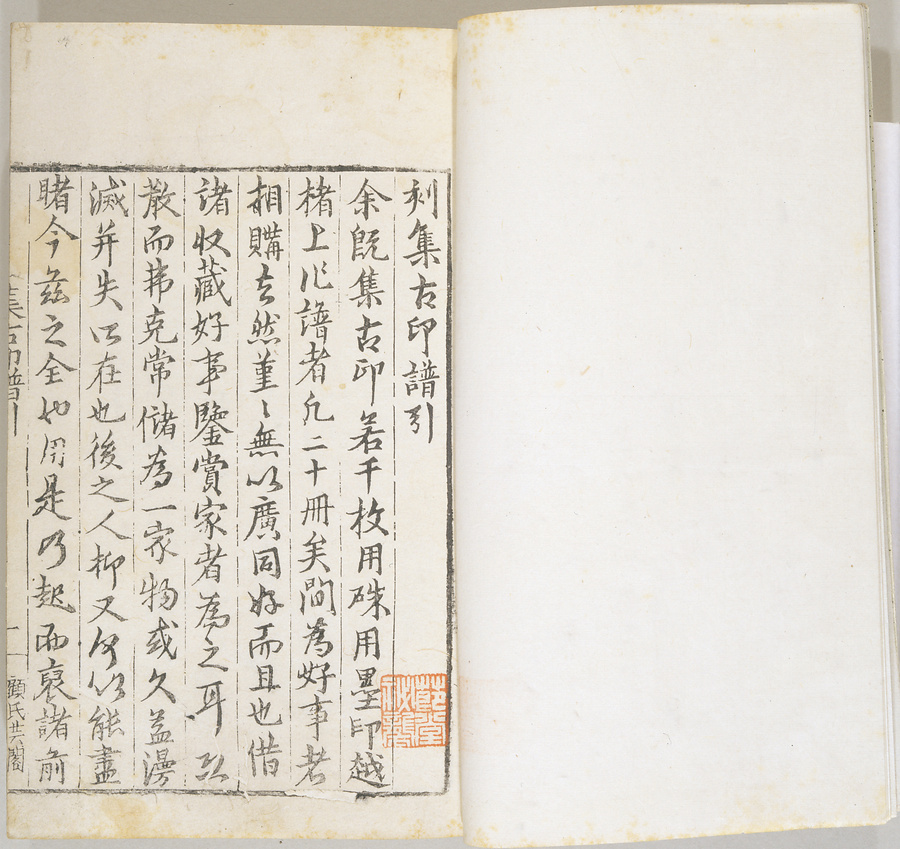 刻集古印譜引
余既集古印若干枚用硃用墨印越
楮上作譜者凡二十冊矣間為好事者
相購去然堇〻無以廣同好而且也借
諸收藏好事鑒賞家者為之耳
散而弗克常儲為一家物或久益漫
滅并失所在也後之人抑又何以能盡
睹今茲之全也用是乃起而裒諸前
集古印譜引
一
顧氏芸閣